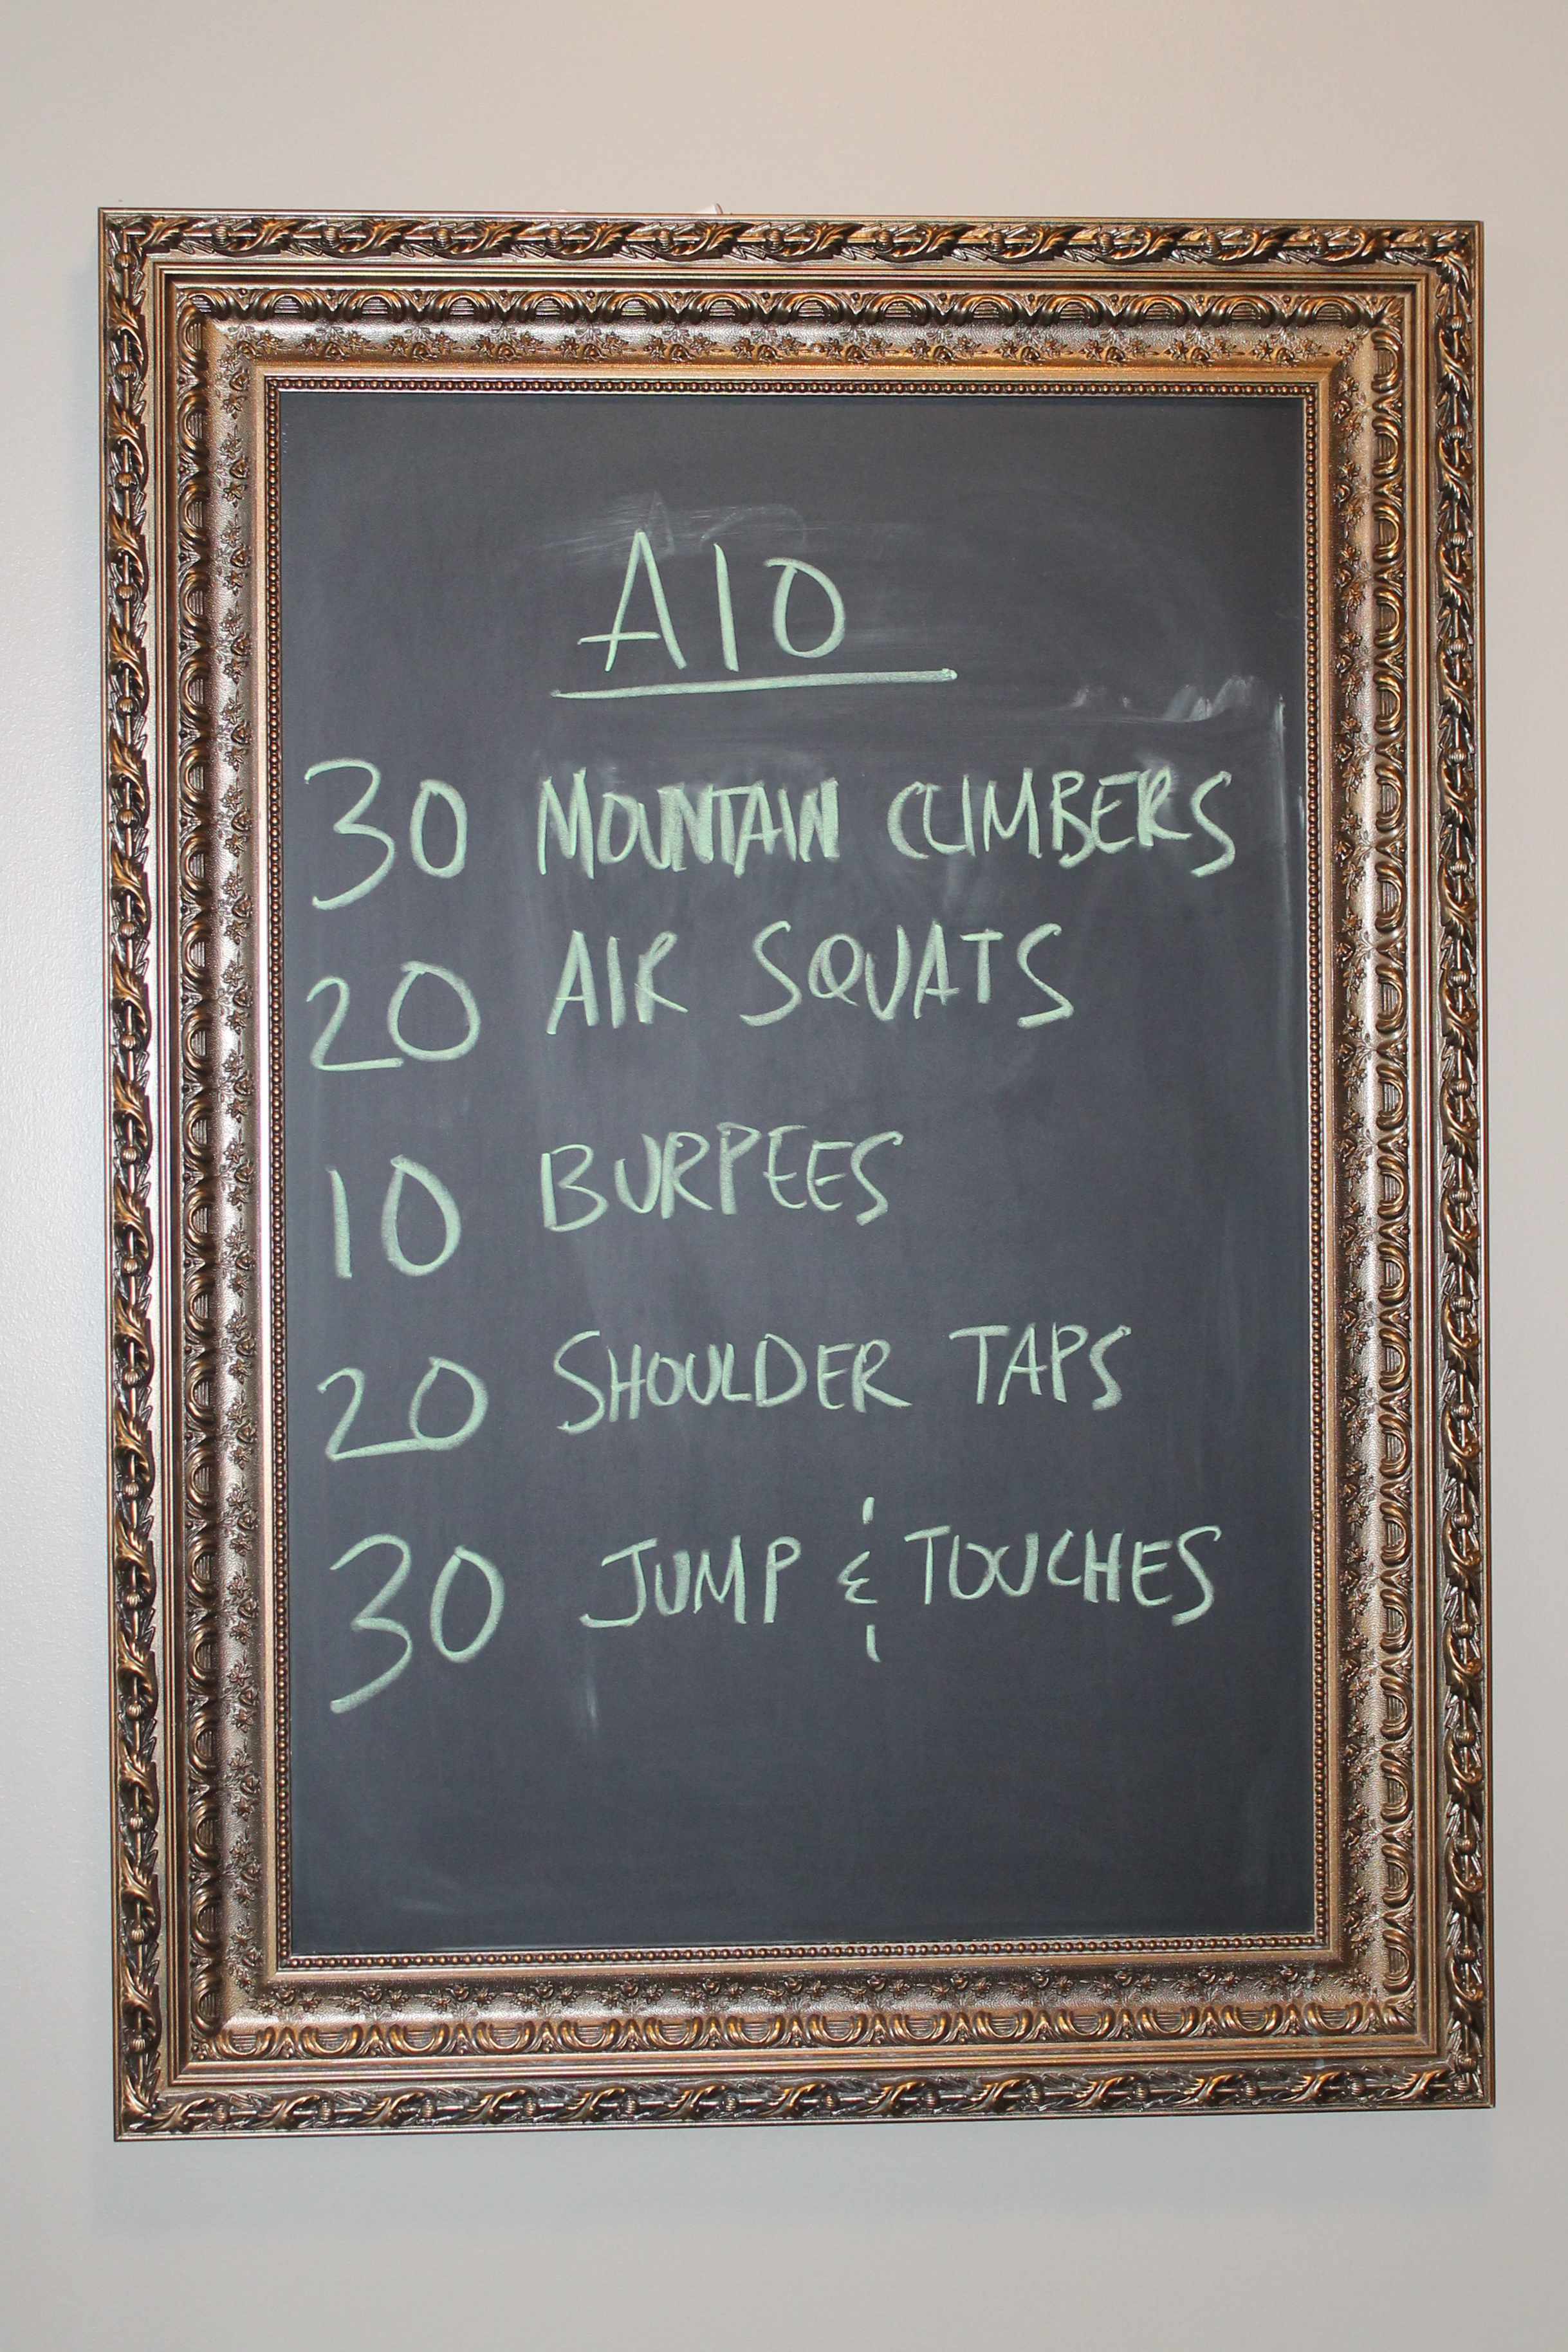 A10
30 MOUNTAIN CLIMBERS
20 AIR SQUATS
10 BURPEES
20 SHOULDER TAPS
30 JUMP & TOUCHES